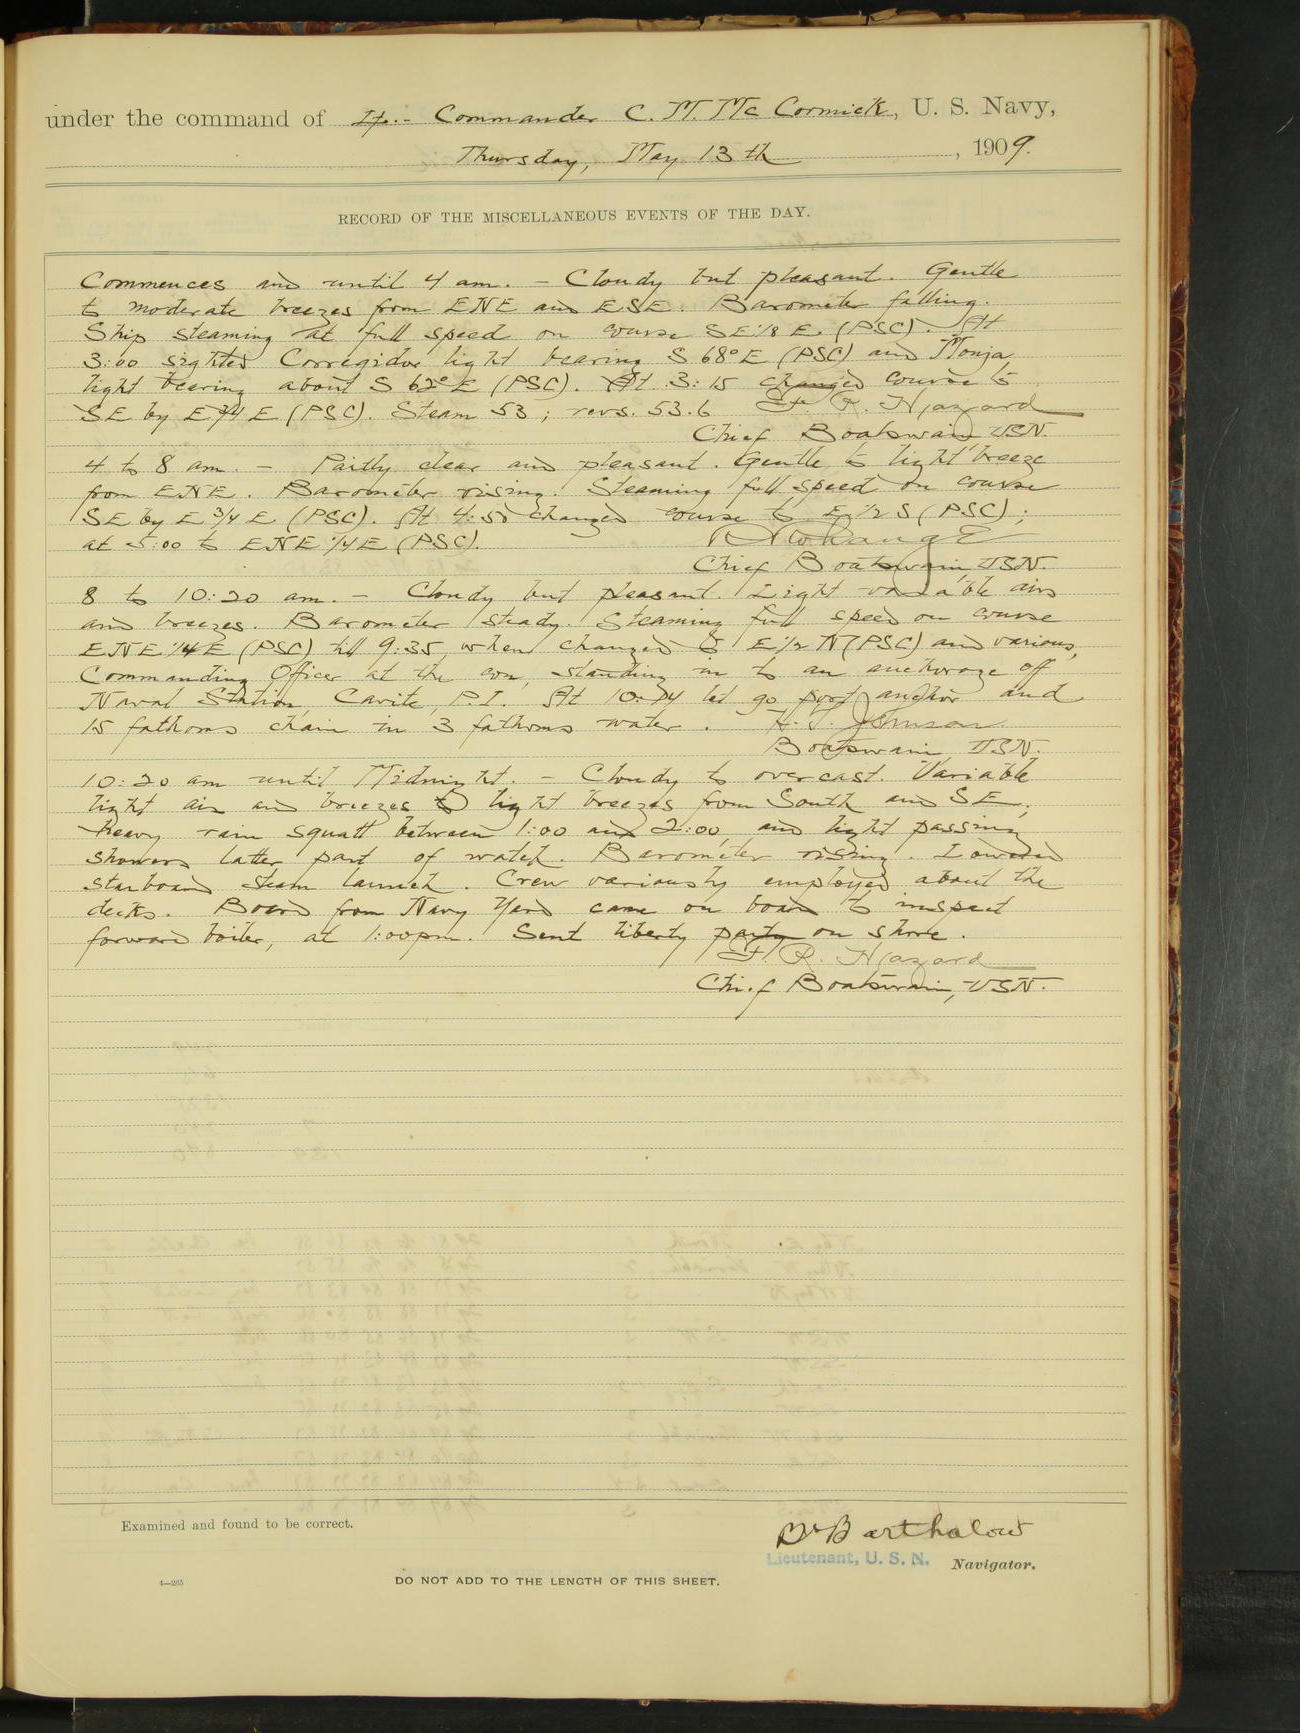 under the command of Lt.- Commander C. M. Mc Cormick, U. S. Navy,
Thursday, May 13th, 1909.
RECORD OF THE MISCELLANEOUS EVENTS OF THE DAY.
Commences and until 4 am. - Cloudy but pleasant. Gentle
to moderate breezes from ENE and ESE. Barometer falling.
Ship steaming at full speed, on course SE 1/8 E. (PSC). At
3:00 sighted Corregidor light bearing S 68° E (PSC) and Monja
light bearing about S 62° E (PSC). At 3:15 changed course to
SE by E 3/4 E (PSC). Steam 53; revs. 53.6 F. R. Hazard
Chief Boatswain USN.
4 to 8 am. - Partly clear and pleasant. Gentle to light breeze
from ENE. Barometer rising. Steaming full speed on course
SE by E 3/4 E (PSC). At 4:50 changed course to E 1/2 S (PSC);
at 5:00 to ENE 1/4 E (PSC).
Chief Boatswain, USN.
8 to 10:20 am. - Cloudy but pleasant. Light variable airs
and breezes. Barometer steady. Steaming full speed on course
ENE 1/4 E (PSC) till 9:35, when changed to E 1/2 N (PSC) and various,
Commanding Officer at the con, standing in to an anchorage off
Naval Station, Cavite, P.I. At 10:14 let go port anchor and
15 fathoms chain in 3 fathoms water. H. T. Johnson
Boatswain USN.
10:20 am until Midnight. - Cloudy to overcast. Variable
light air and breezes to light breezes from South and SE;
heavy rain squall between 1:00 and 2:00, and light passing
showers latter part of watch. Barometer rising. Lowered
starboard steam launch. Crew variously employed about the
decks. Board from Navy Yard came on board to inspect
forward boiler, at 1:00 pm. Sent liberty party on shore.
F. R. Hazard
Chief Boatswain, USN.
Examined and found to be correct.
Barthalow
Lieutenant, U. S. N. Navigator.
4—265
DO NOT ADD TO THE LENGTH OF THIS SHEET.